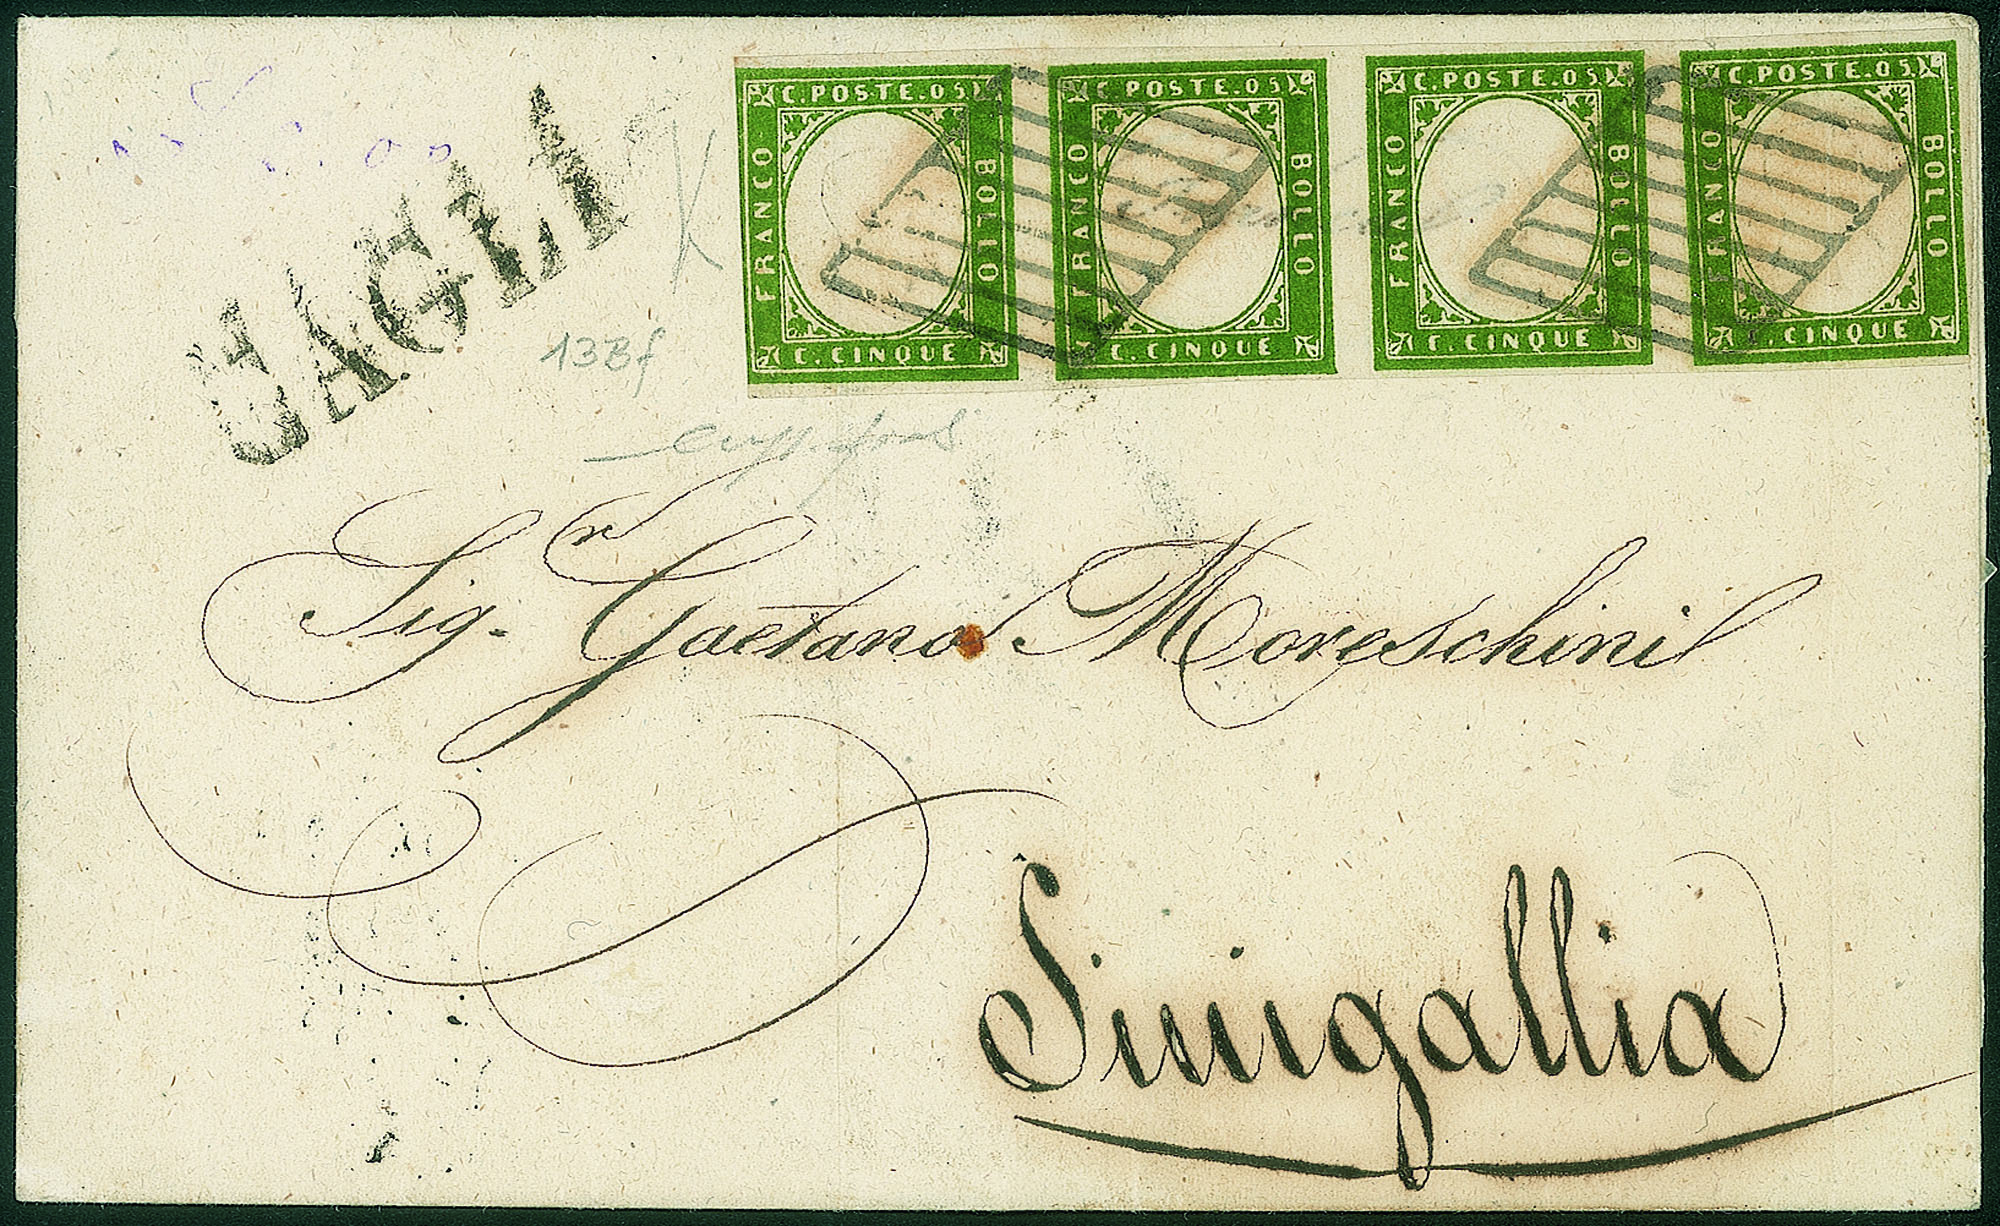 C. POSTE. 05
FRANCO
BOLLO
C. CINQUE
C. POSTE. 05
FRANCO
BOLLO
C. CINQUE
C. POSTE. 05
FRANCO
BOLLO
C. CINQUE
C. POSTE. 05.
FRANCO
BOLLO
C. CINQUE
CAGLI
13Bf
Sig.r Gaetano Moreschini
Sinigallia